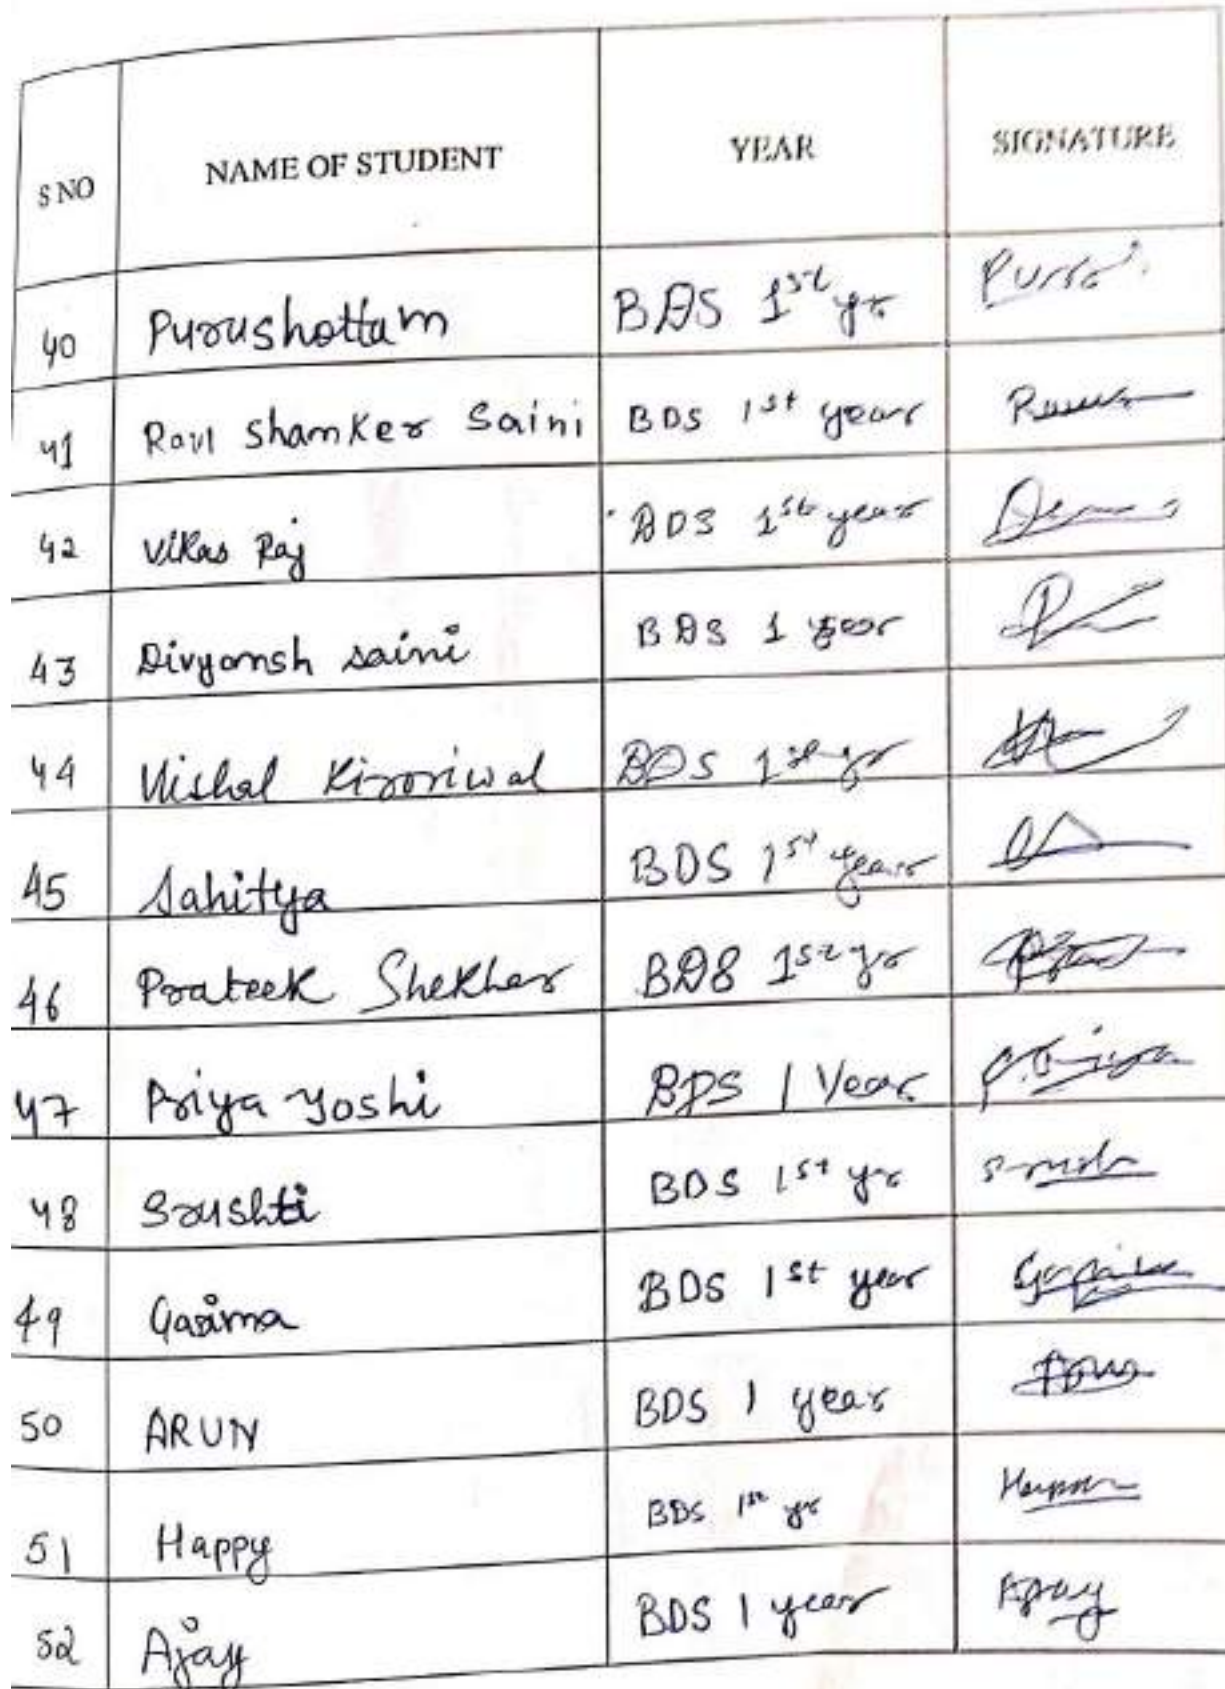 S NO NAME OF STUDENT YEAR SIGNATURE
40 Purushottam BDS 1st yr
41 Ravi Shanker Saini BDS 1st year
42 Vikas Raj BDS 1st year
43 Divyansh saini BDS 1 year
44 Vishal Kirroriwal BDS 1st yr
45 Sahitya BDS 1st year
46 Prateek Shekher BDS 1st yr
47 Priya Joshi BDS 1 Year
48 Srushti BDS 1st yr
49 Garima BDS 1st year
50 ARUN BDS 1 year
51 Happy BDS 1st yr
52 Ajay BDS 1 year Ajay